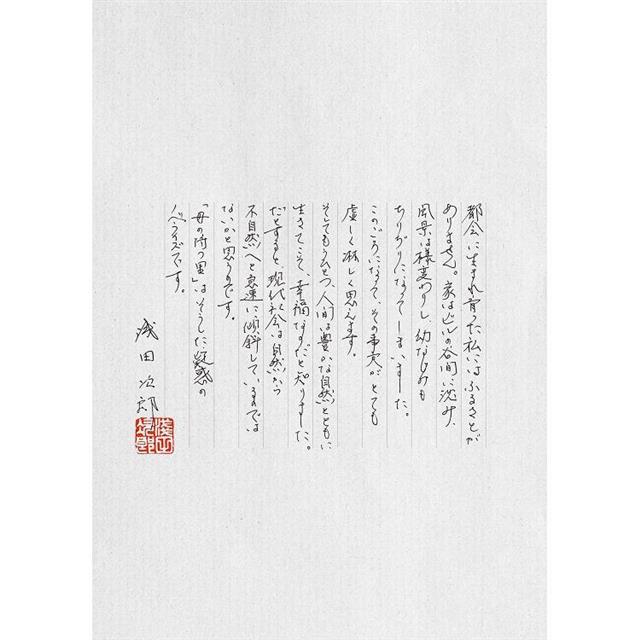 都会に生まれ育った私にはふるさとが
ありません。家はビルの谷間に沈み、
風景は様変わりし、幼なじみも
ちりぢりになってしまいました。
このごろになって、その事実がとても
虚しく淋しく思えます。
そしてもうひとつ、人間は豊かな自然とともに
生きてこそ、幸福なのだと知りました。
だとすると、現代社会は自然から
不自然へと急速に傾斜しているのでは
ないかと思うのです。
「母の待つ里」はそうした疑惑の
ノベライズです。
浅田次郎
浅田次郎